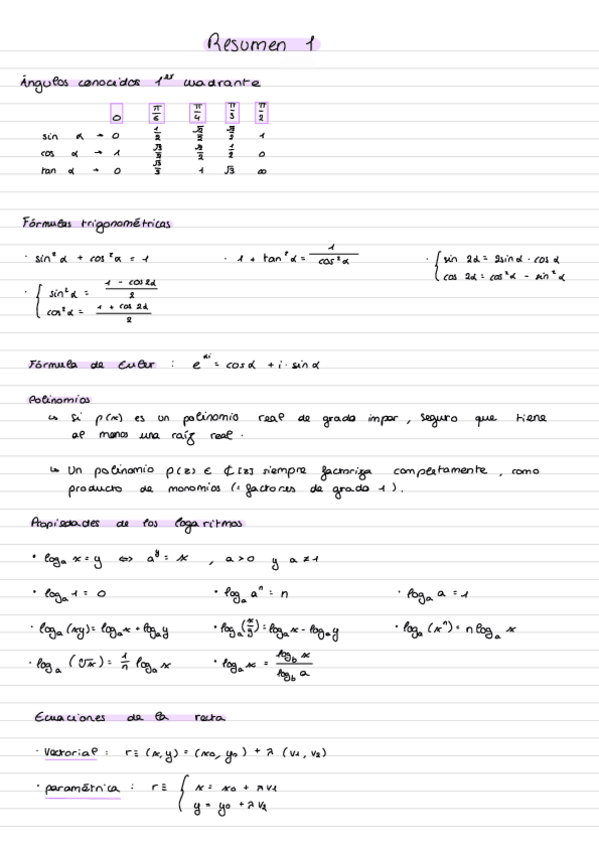 Resumen 1
Ángulos conocidos 1er cuadrante
0 π/6 π/4 π/3 π/2
sin α → 0 1/2 √2/2 √3/2 1
cos α → 1 √3/2 √2/2 1/2 0
tan α → 0 √3/3 1 √3 ∞
Fórmulas trigonométricas
· sin²α + cos²α = 1 · 1 + tan²α = 1/cos²α · { sin 2α = 2sinα · cosα
cos 2α = cos²α - sin²α
· { sin²α = (1 - cos2α)/2
cos²α = (1 + cos 2α)/2
Fórmula de Euler : e^αi = cosα + i · sinα
Polinomios
↳ Si p(x) es un polinomio real de grado impar, seguro que tiene
al menos una raíz real.
↳ Un polinomio p(z) ∈ ℂ[z] siempre factoriza completamente, como
producto de monomios (= factores de grado 1).
Propiedades de los logaritmos
· logₐ x = y ⇔ a^y = x , a>0 y a≠1
· logₐ 1 = 0 · logₐ aⁿ = n · logₐ a = 1
· logₐ(xy) = logₐx + logₐy · logₐ(x/y) = logₐx - logₐy · logₐ(xⁿ) = n logₐ x
· logₐ(ⁿ√x) = 1/n logₐ x · logₐ x = log_b x / log_b a
Ecuaciones de la recta
· Vectorial : r ≡ (x,y) = (x₀, y₀) + λ (v₁, v₂)
· paramétrica : r ≡ { x = x₀ + λv₁
y = y₀ + λv₂